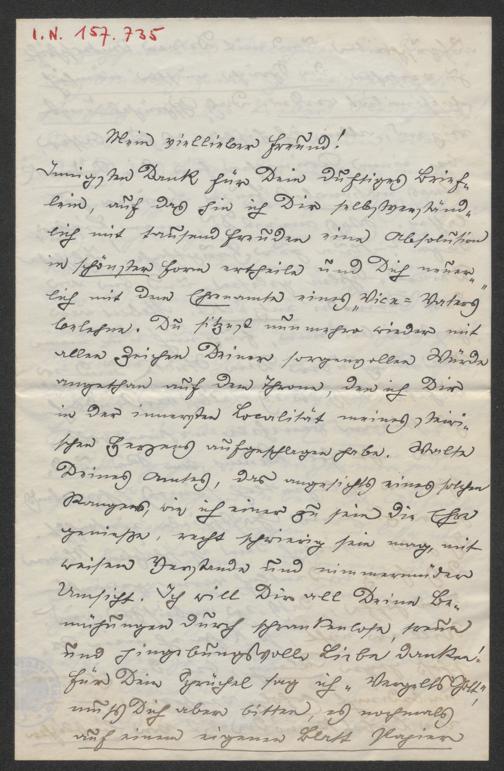 I.N. 157.735
Mein viellieber Freund!
Innigsten Dank für Dein duftiges Brief-
lein, auf das hin ich Dir selbstverständ-
lich mit tausend Freuden eine Absolution
in schönster Form ertheile und Dich neuer-
lich mit dem Ehrenamte eines „Vice-Vaters"
belehne. Du sitzest nunmehro wieder mit
allen Zeichen Deiner sorgenvollen Würde
angethan auf dem Throne, den ich Dir
in der innersten Localität meines steiri-
schen Herzens aufgeschlagen habe. Walte
Deines Amtes, das angesichts eines solchen
Rangers, wie ich einer zu sein die Ehre
genieße, recht schwierig sein mag, mit
weisem Verstande und nimmermüder
Umsicht. Ich will Dir all Deine Be-
mühungen durch schrankenlose, treue
und hingebungsvolle Liebe danken!
Für Dein Sprüchel sag ich „Vergelts Gott",
muß Dich aber bitten, es nochmals
auf einem eigenen Blatt Papier